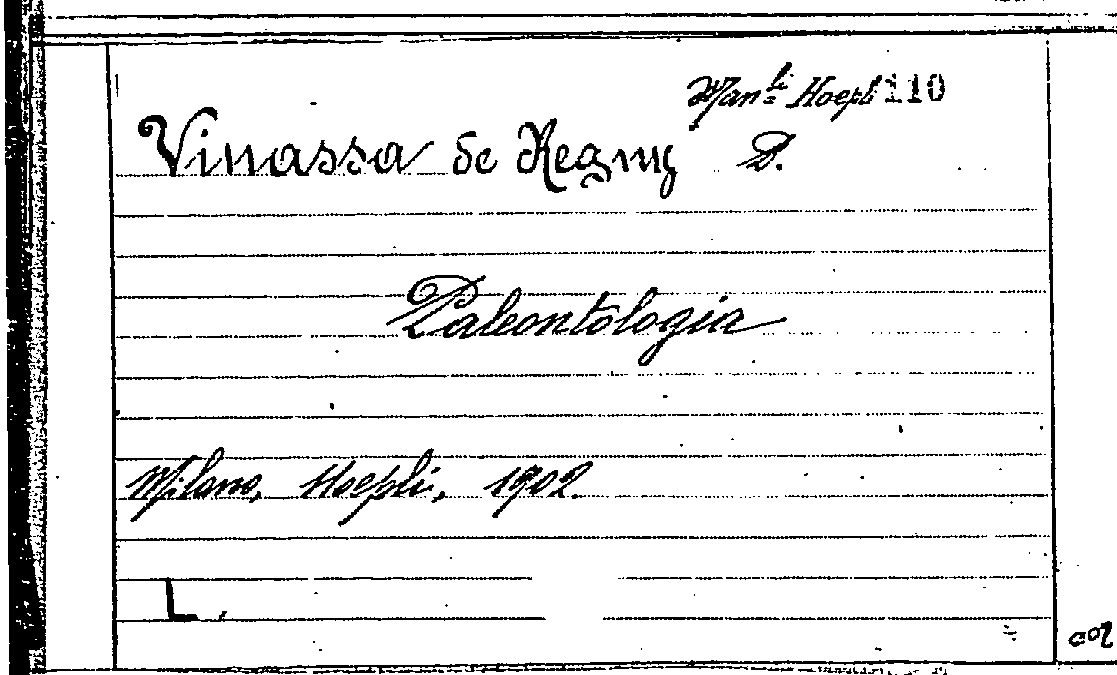 Man.li Hoepli 110
Vinassa de Regny P.
Paleontologia
Milano, Hoepli, 1902.
L.